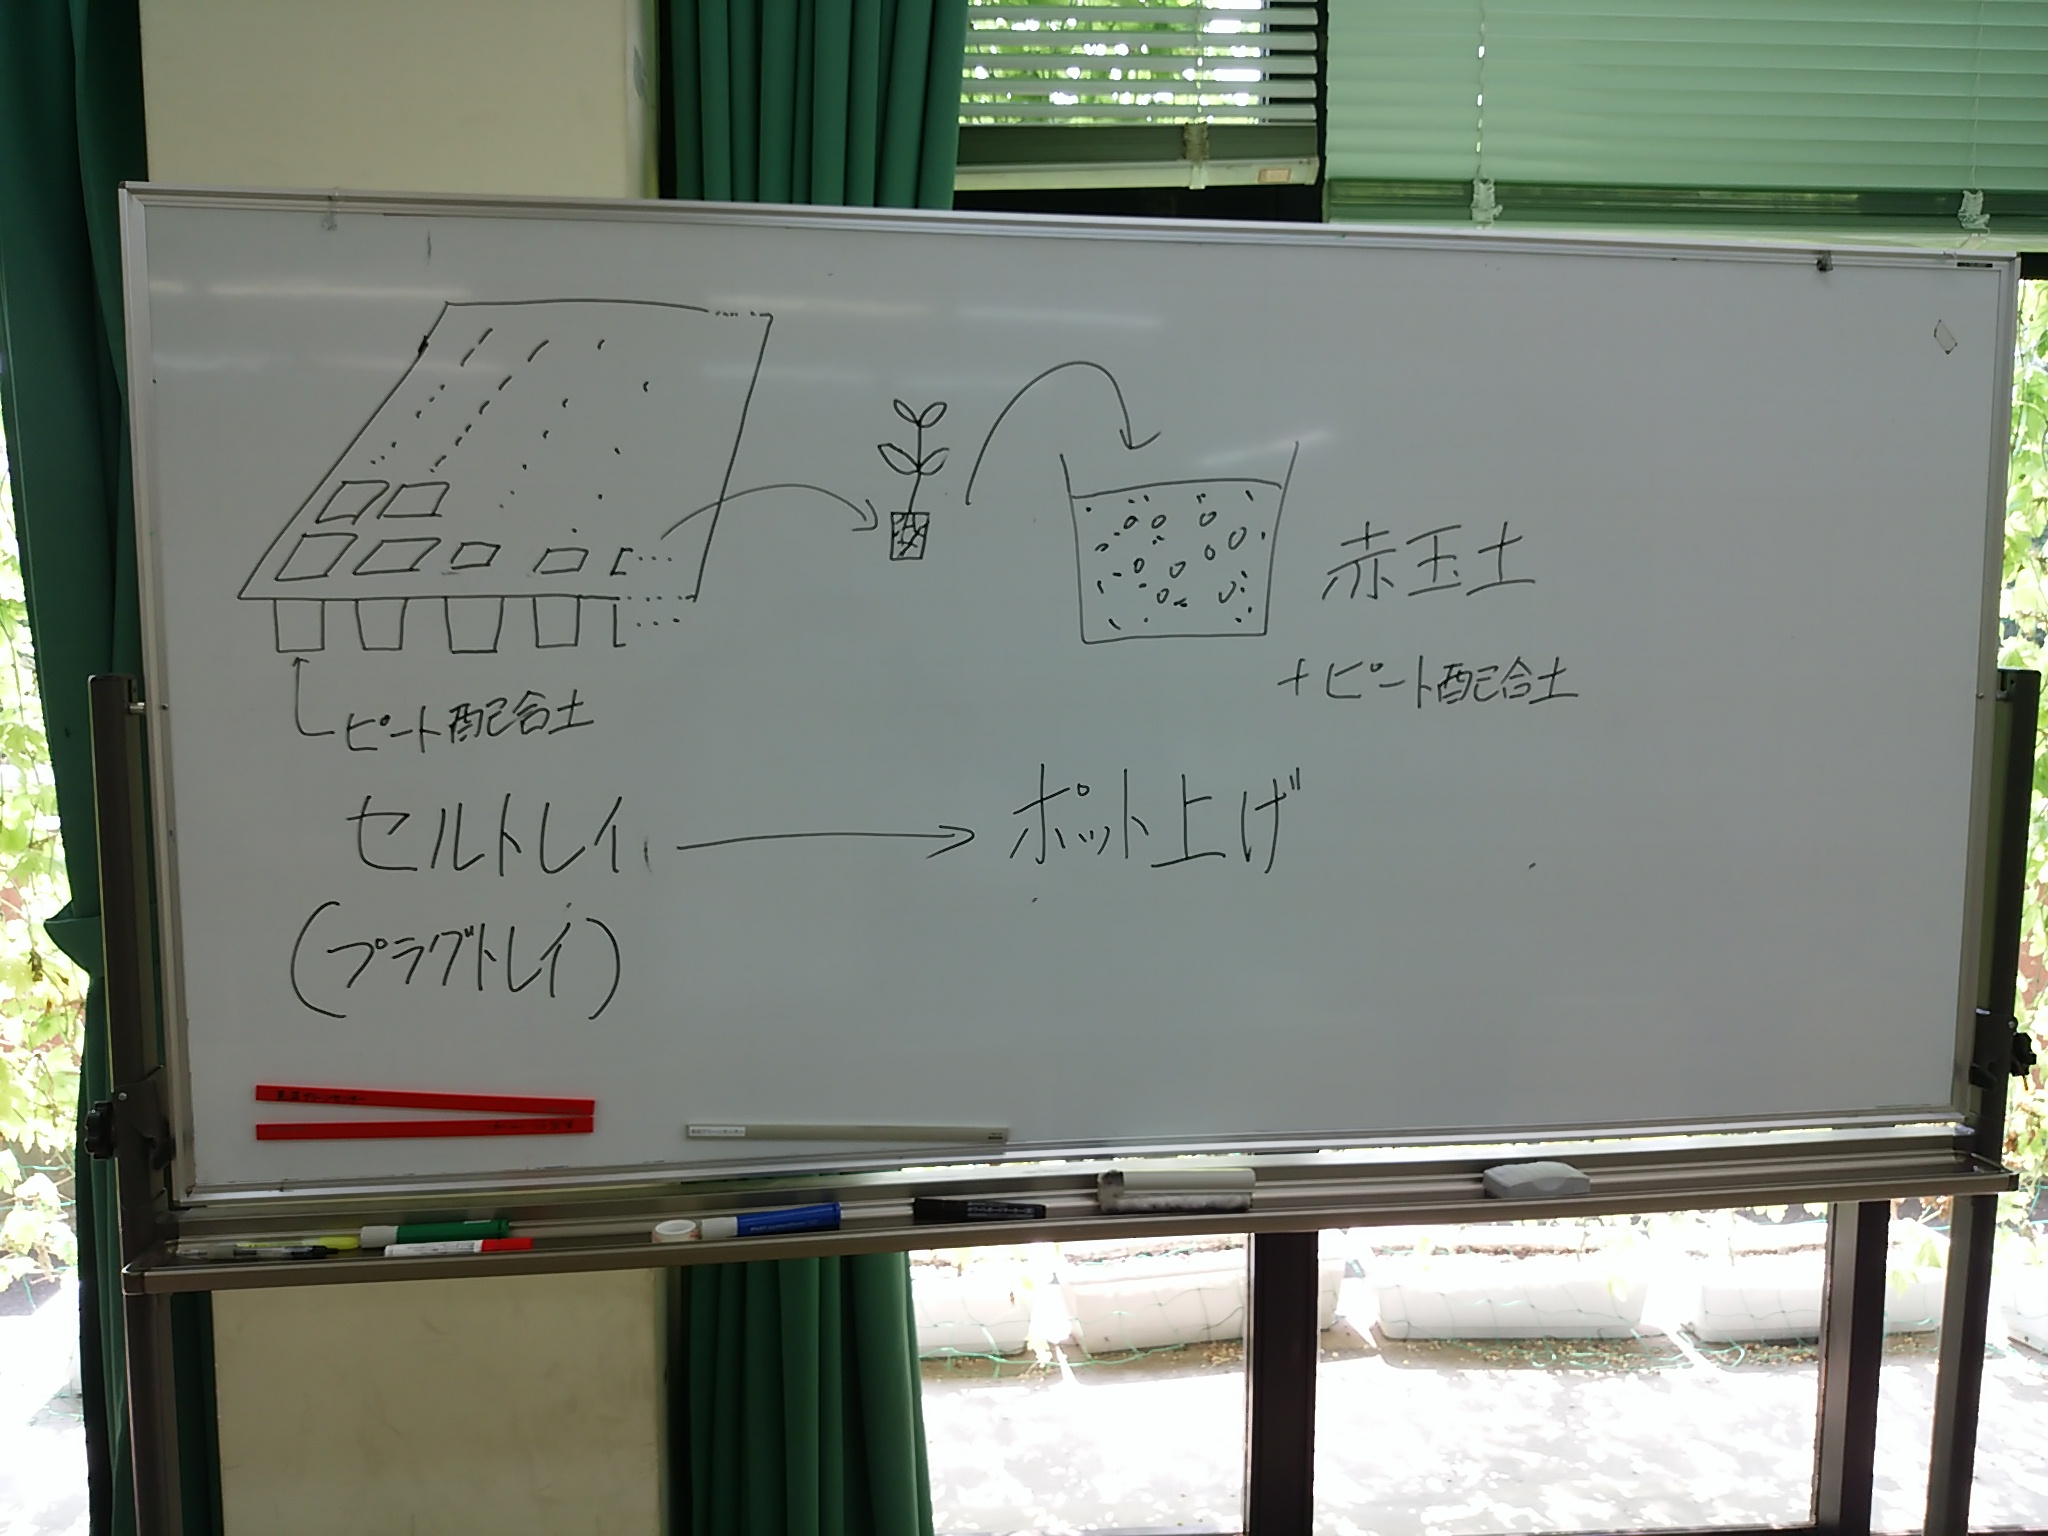 赤玉土
+ピート配合土
ピート配合土
セルトレイ
ポット上げ
(プラグトレイ)